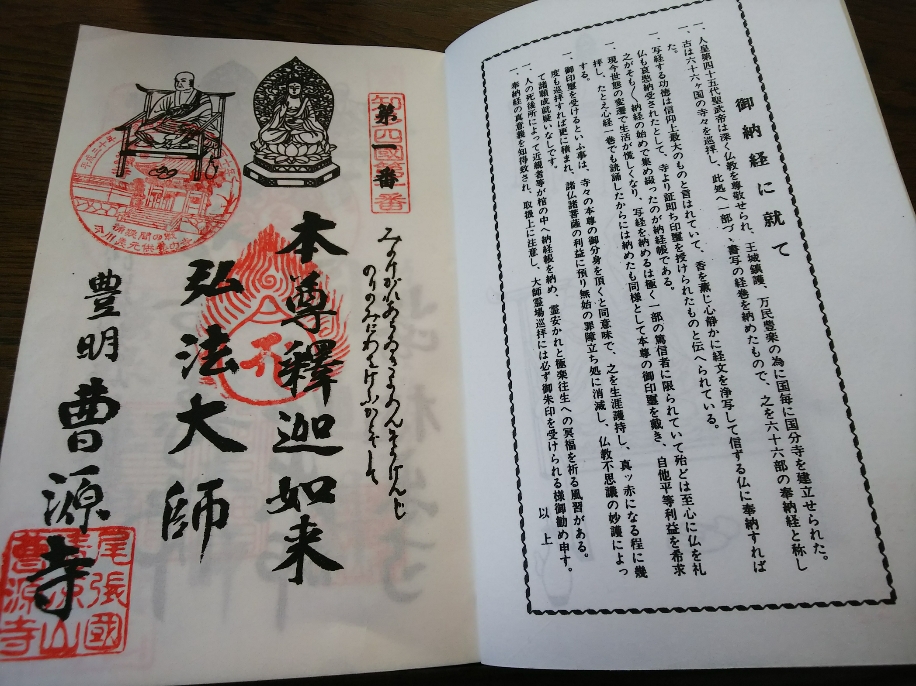 御納経に就て
一、人皇第四十五代聖武帝は深く仏教を尊敬せられ、王城鎮護、万民豊楽の為に国毎に国分寺を建立せられた。
古は六十六ヶ国の寺々を巡拝し、此処へ一部づゝ書写の経巻を納めたもので、之を六十六部の奉納経と称した。
一、写経する功徳は信仰上最大のものと言はれていて、香を薫じ心静かに経文を浄写して信ずる仏に奉納すれば
仏も哀愍納受されたとして、寺より証即ち印璽を授けられたものと伝へられている。
之がそもそも納経の始めで集め綴ったのが納経帳である。
一、現今世態の変遷で生活が慌しくなり、写経を納めるは極く一部の篤信者に限られていて殆どは至心に仏を礼
拝し、たとえ心経一巻でも読誦したからには納めたも同様として本尊の御印璽を戴き、自他平等利益を希求
する。
一、御印璽を受けるといふ事は、寺々の本尊の御分身を頂くと同意味で、之を生涯護持し、真ッ赤になる程に幾
度も巡拝すれば更に積まれ、諸仏諸菩薩の利益に預り無始の罪障立ち処に消滅し、仏教不思議の妙護によっ
て諸願成就疑いなしです。
一、人の死後所によって近親者等が棺の中へ納経帳を納め、霊安かれと極楽往生への冥福を祈る風習がある。
一、奉納経の真意義を知得致され、取扱上に注意し、大師霊場巡拝には必ず御朱印を受けられる様御勧め申す。
以上
第一番
本尊釋迦如来
弘法大師
豊明
曹源寺
尾張國
曹源寺